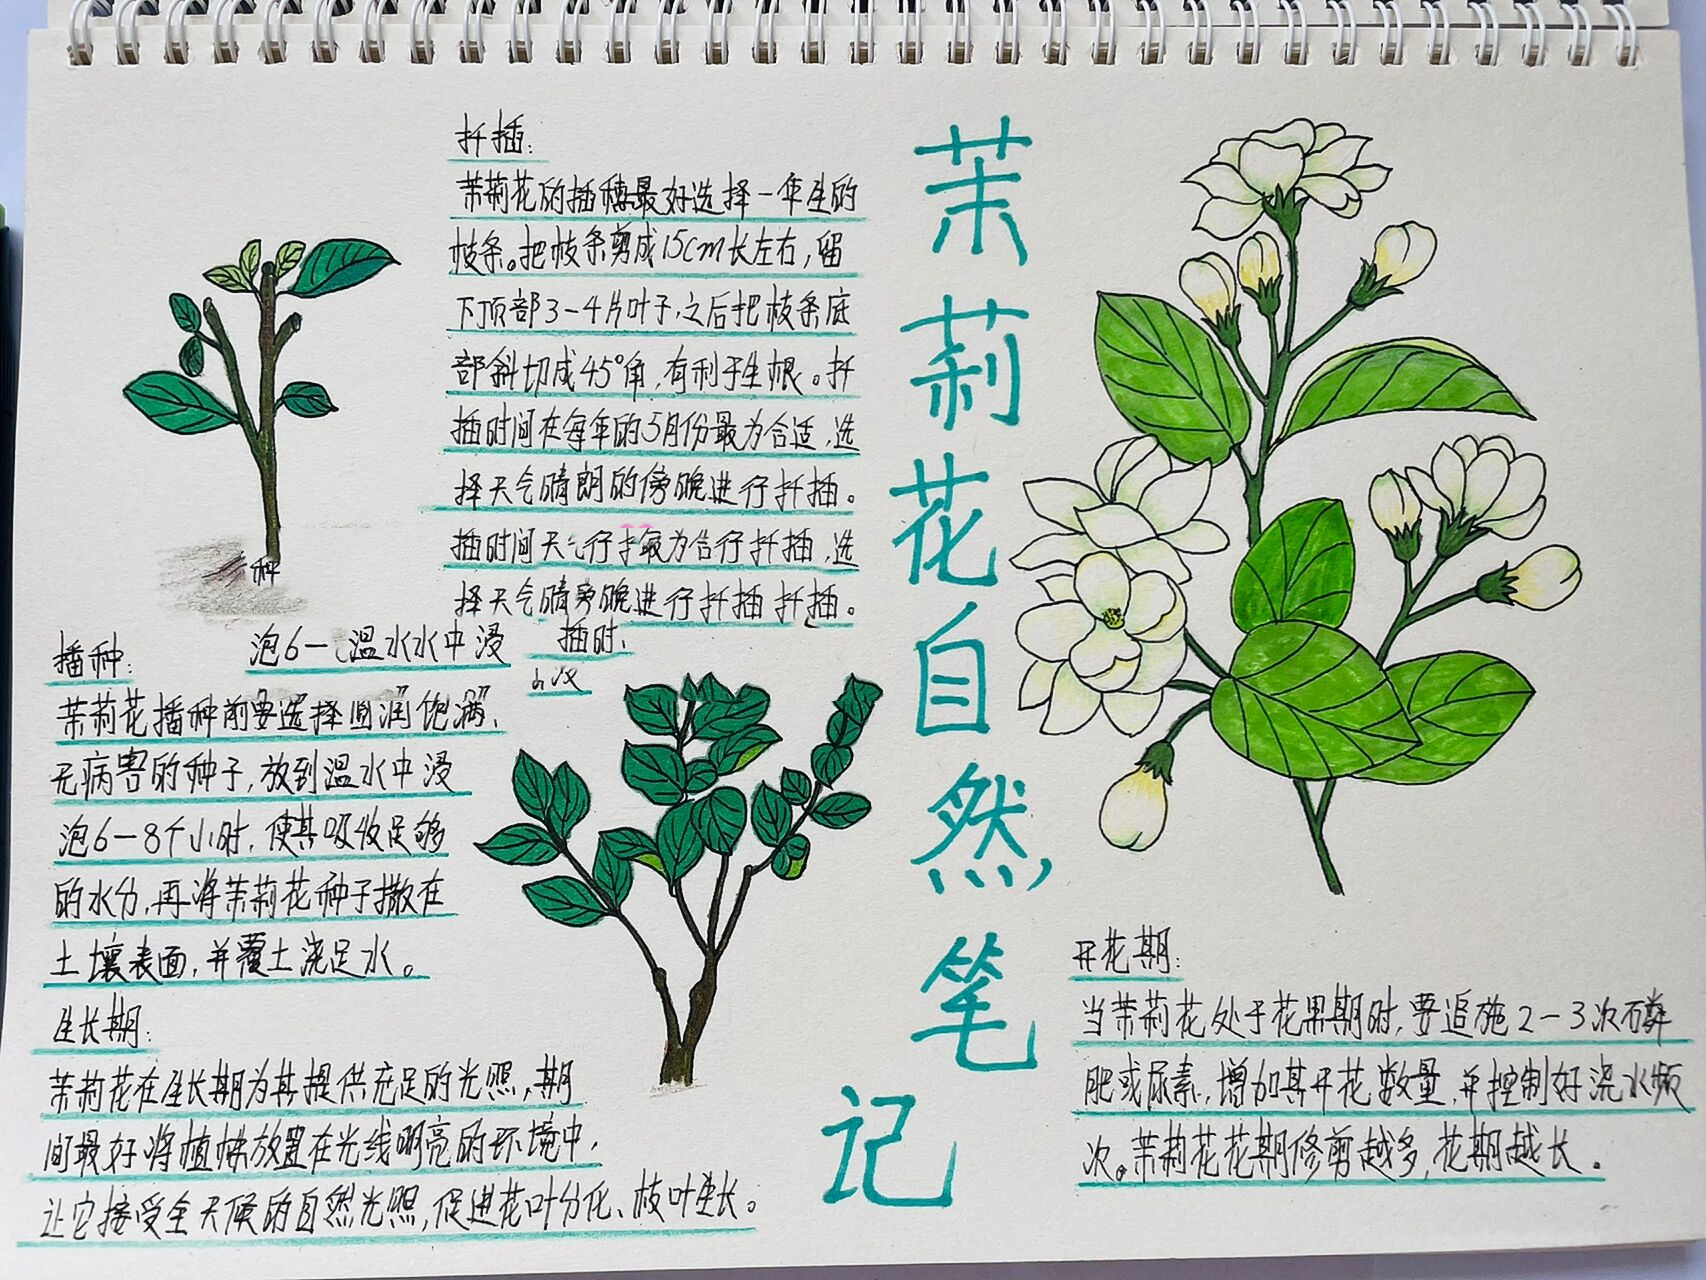 茉莉花自然笔记
扦插:
茉莉花的插穗最好选择一年生的
枝条。把枝条剪成15cm长左右,留
下顶部3-4片叶子,之后把枝条底
部斜切成45°角,有利于生根。扦
插时间在每年的5月份最为合适,选
择天气晴朗的傍晚进行扦插。
插时间天气行扦最为合行扦插,选
择天气晴旁晚进行扦插扦插。
插时、
种
泡6-温水水中浸
播种:
茉莉花播种前要选择圆润饱满、
无病害的种子,放到温水中浸
泡6-8个小时,使其吸收足够
的水分,再将茉莉花种子撒在
土壤表面,并覆土浇足水。
生长期:
茉莉花在生长期为其提供充足的光照,期
间最好将植株放置在光线明亮的环境中,
让它接受全天候的自然光照,促进花叶分化、枝叶生长。
开花期:
当茉莉花处于花果期时,要追施2-3次磷
肥或尿素,增加其开花数量,并控制好浇水频
次。茉莉花花期修剪越多,花期越长。